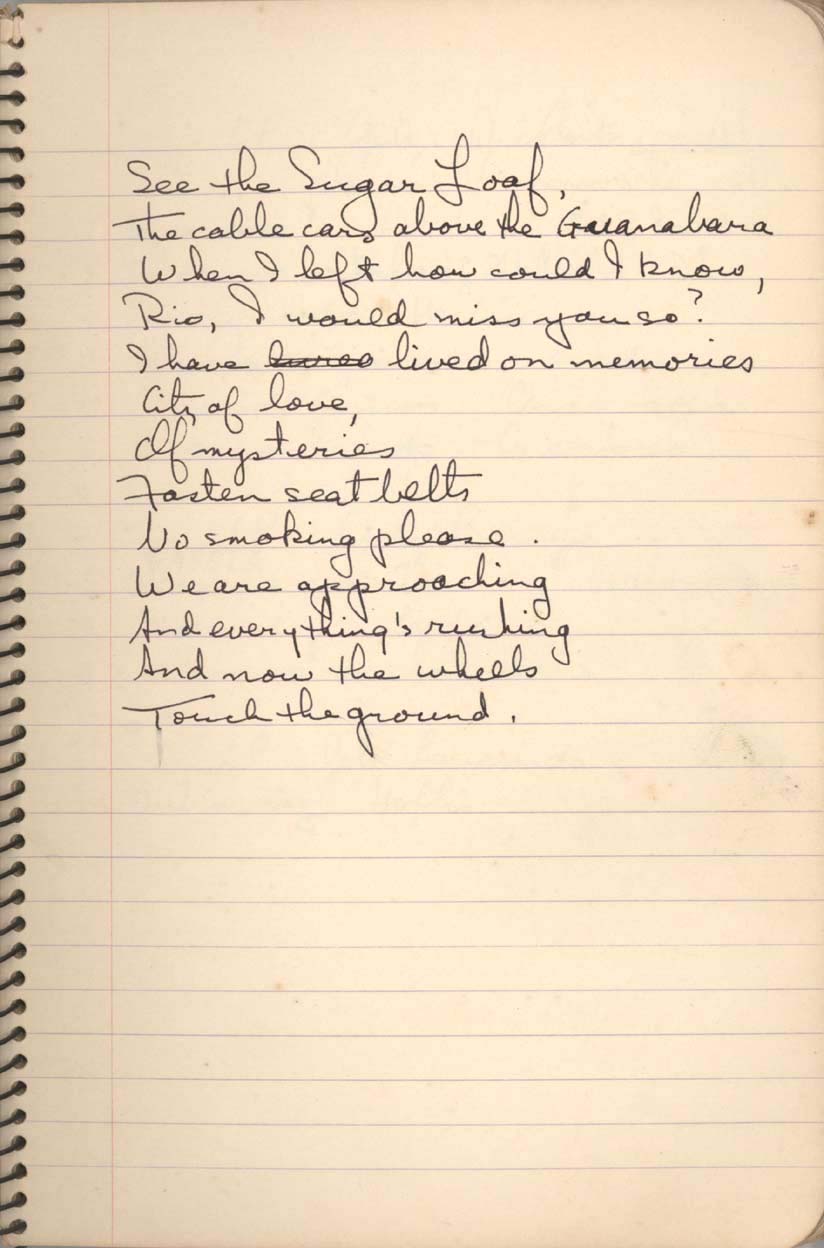 See the Sugar Loaf,
The cable cars above the Guanabara
When I left how could I know,
Rio, I would miss you so?
I have lived on memories
City of love,
Of mysteries
Fasten seat belts
No smoking please.
We are approaching
And everything's rushing
And now the wheels
Touch the ground.